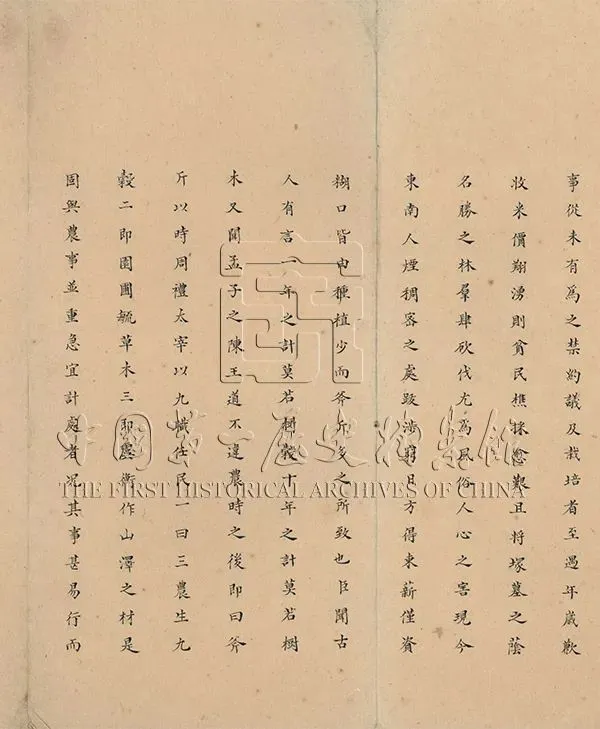 事從未有為之禁約議及栽培者至過年歲歉
收米價翔湧則貧民樵採愈艱且將塚墓之蔭
名勝之林羣肆砍伐尤為風俗人心之害現今
東南人煙稠密之處跋涉窮日方得束薪僅資
糊口皆由種植少而斧斤多之所致也臣聞古
人有言一年之計莫若樹穀十年之計莫若樹
木又聞孟子之陳王道不違農時之後即曰斧
斤以時周禮太宰以九職任民一曰三農生九
穀二即園圃毓草木三即虞衡作山澤之材是
固與農事並重急宜計處者況其事甚易行而
中國第一歷史檔案館
THE FIRST HISTORICAL ARCHIVES OF CHINA